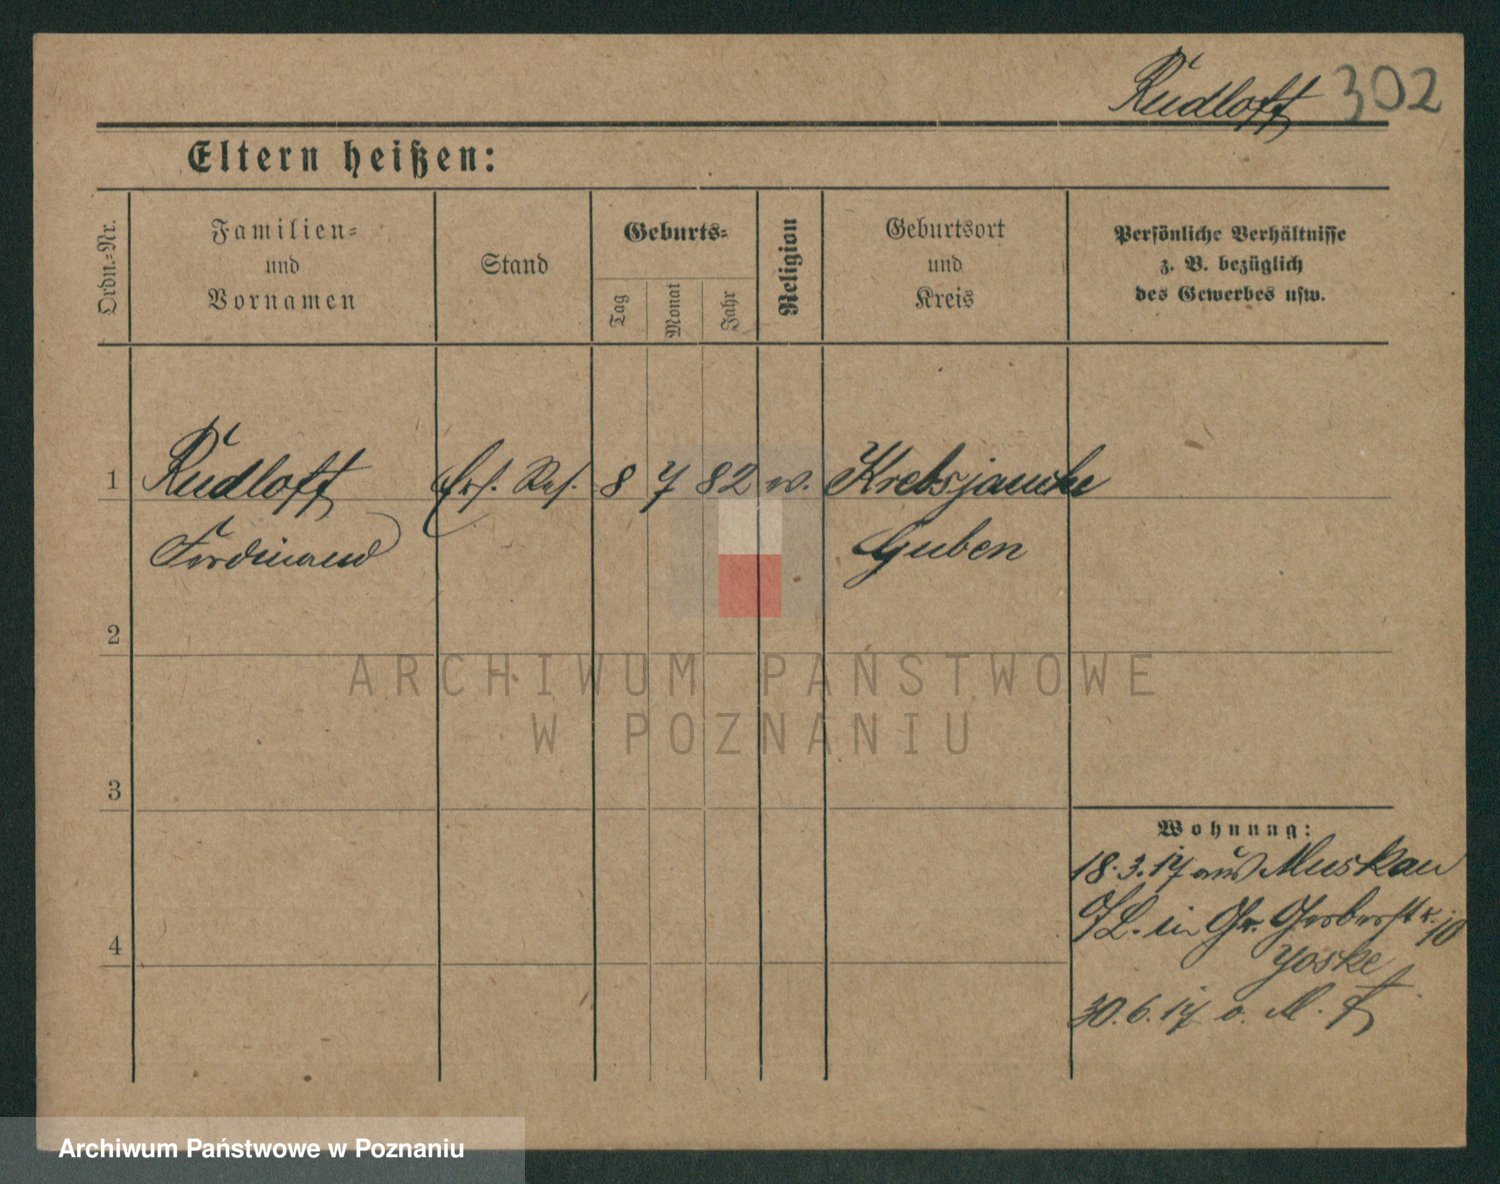 Rudloff 302
Eltern heißen:
Ordn.-Nr.
Familien-
und
Vornamen
Stand
Geburts-
Tag
Monat
Jahr
Religion
Geburtsort
und
Kreis
Persönliche Verhältnisse
z. B. bezüglich
des Gewerbes usw.
1 Rudloff Ers. Res. 8 7 82 ev. Krebsjauche
Ferdinand Guben
2
ARCHIWUM PAŃSTWOWE
W POZNANIU
3
Wohnung:
18.3.17 aus Muskau
O/L. in Gr. Gerberstr. 10
Yoske
4
30.6.17 o. M. f
Archiwum Państwowe w Poznaniu